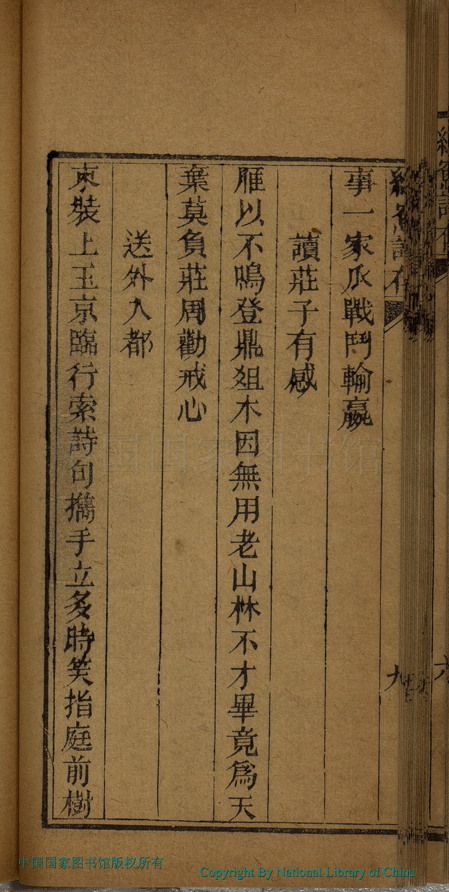 事一家瓜戰鬥輸贏
讀莊子有感
雁以不鳴登鼎俎木因無用老山林不才畢竟爲天
棄莫負莊周勸戒心
送外入都
束裝上玉京臨行索詩句攜手立多時笑指庭前樹
中国国家图书馆版权所有
Copyright By National Library of China